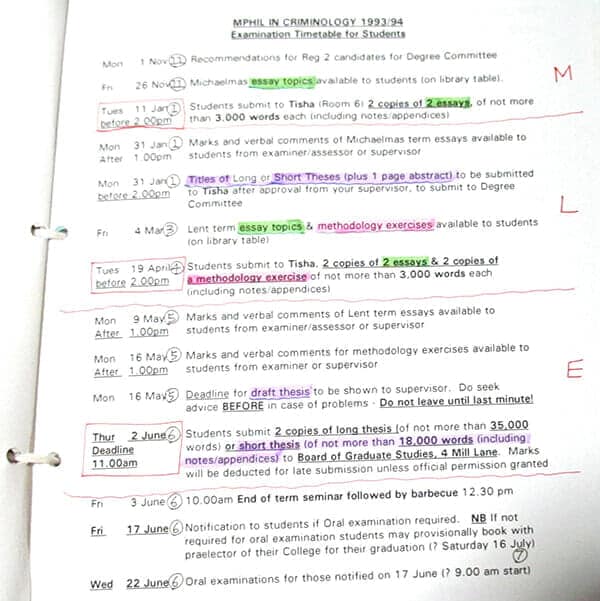 MPHIL IN CRIMINOLOGY 1993/94
Examination Timetable for Students
Mon 1 Nov (11) Recommendations for Reg 2 candidates for Degree Committee
Fri 26 Nov (11) Michaelmas essay topics available to students (on library table).
M
Tues 11 Jan (1) Students submit to Tisha (Room 6) 2 copies of 2 essays, of not more
before 2.00pm than 3,000 words each (including notes/appendices)
Mon 31 Jan (1) Marks and verbal comments of Michaelmas term essays available to
After 1.00pm students from examiner/assessor or supervisor
Mon 31 Jan (1) Titles of Long or Short Theses (plus 1 page abstract) to be submitted
before 2.00pm to Tisha after approval from your supervisor, to submit to Degree
Committee
L
Fri 4 Mar (3) Lent term essay topics & methodology exercises available to students
(on library table)
Tues 19 April (4) Students submit to Tisha, 2 copies of 2 essays & 2 copies of
before 2.00pm a methodology exercise of not more than 3,000 words each
(including notes/appendices)
Mon 9 May (5) Marks and verbal comments of Lent term essays available to
After 1.00pm students from examiner/assessor or supervisor
Mon 16 May (5) Marks and verbal comments for methodology exercises available to
After 1.00pm students from examiner or supervisor
E
Mon 16 May (5) Deadline for draft thesis to be shown to supervisor. Do seek
advice BEFORE in case of problems - Do not leave until last minute!
Thur 2 June (6) Students submit 2 copies of long thesis (of not more than 35,000
Deadline words) or short thesis (of not more than 18,000 words (including
11.00am notes/appendices) to Board of Graduate Studies, 4 Mill Lane. Marks
will be deducted for late submission unless official permission granted
Fri 3 June (6) 10.00am End of term seminar followed by barbecue 12.30 pm
Fri 17 June (6) Notification to students if Oral examination required. NB If not
required for oral examination students may provisionally book with
praelector of their College for their graduation (? Saturday 16 July)
(7)
Wed 22 June (6) Oral examinations for those notified on 17 June (? 9.00 am start)